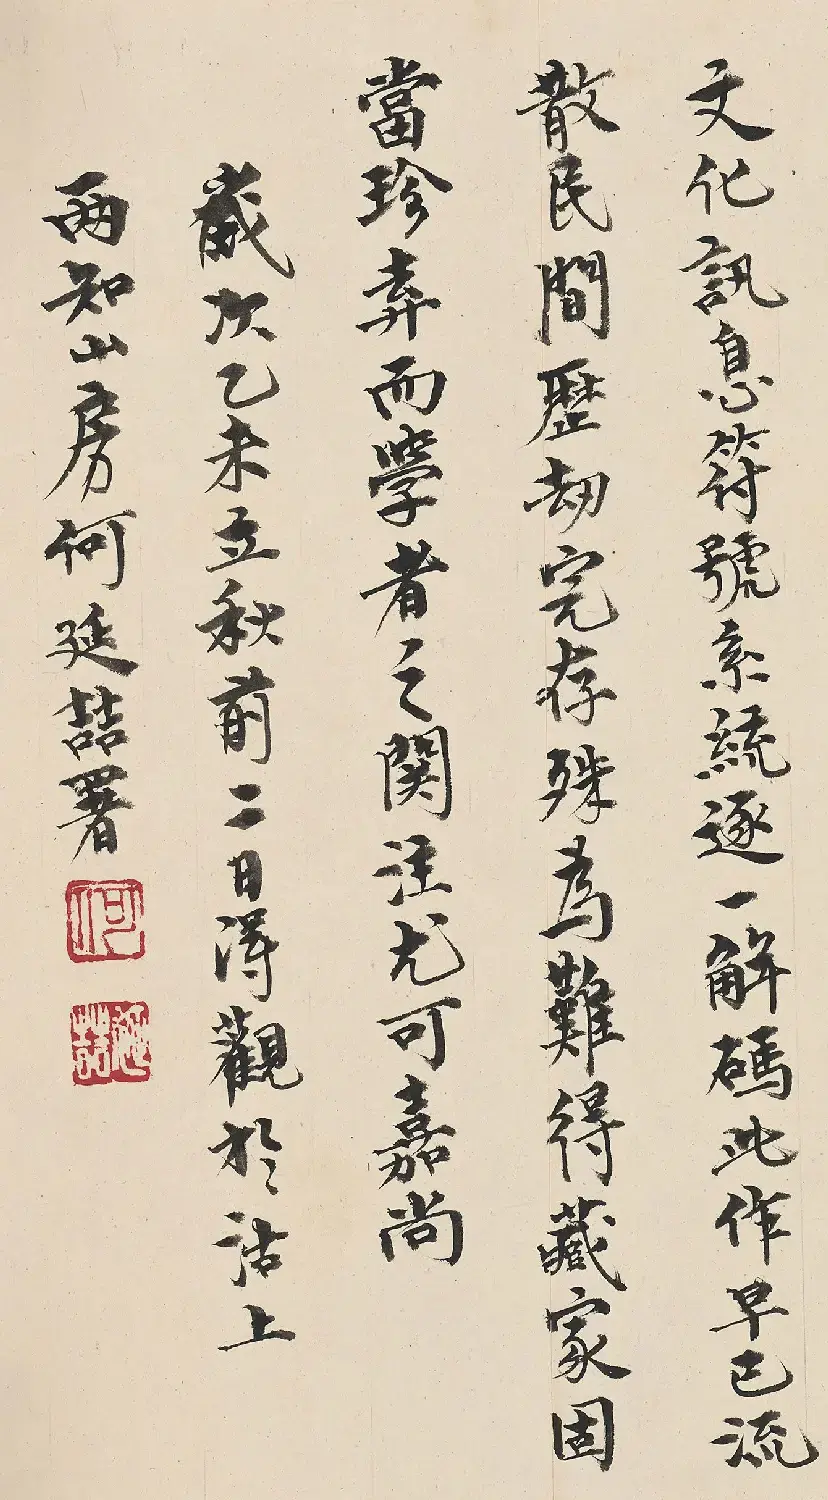 文化訊息符號系統逐一解碼此作早已流
散民間歷劫完存殊為難得藏家固
當珍弆而學者之関注尤可嘉尚
歲次乙未立秋前二日得觀於沽上
兩知山房何延喆署
何
延喆